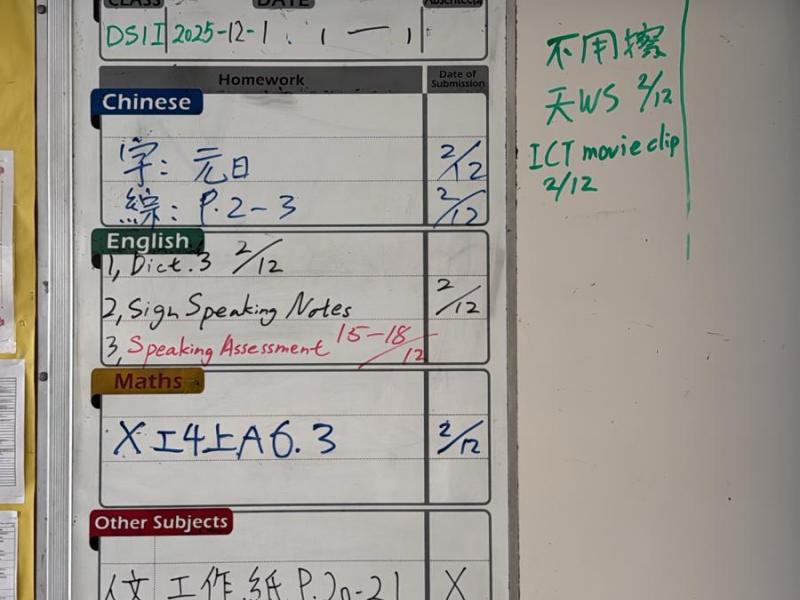 CLASS DATE Absentees
2025-12-1
Homework Date of Submission
Chinese
字: 元日 2/12
綜: P.2-3 2/12
English
1, Dict.3 2/12
2, Sign Speaking Notes 2/12
3, Speaking Assessment 15-18/12
Maths
X 工4上A6.3 2/12
Other Subjects
工作紙 P.20-21 X
不用擦
天WS 2/12
ICT movie clip
2/12